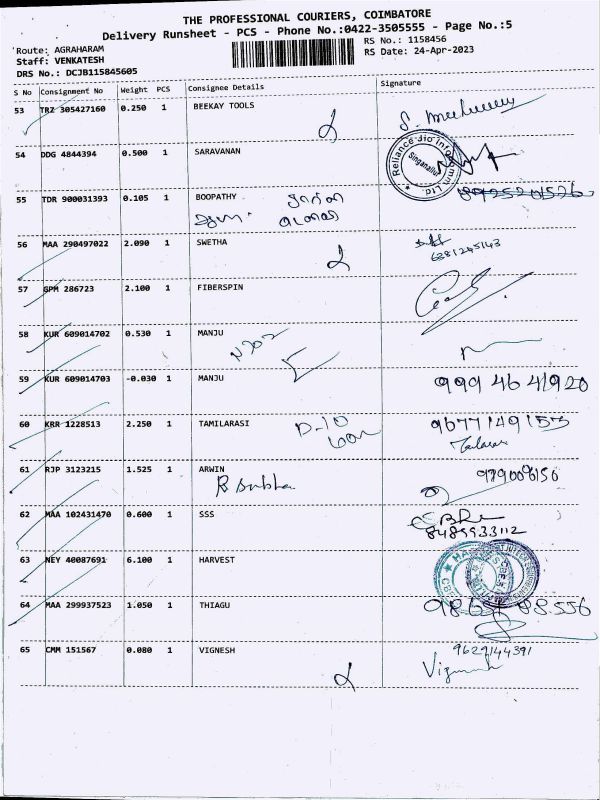 THE PROFESSIONAL COURIERS, COIMBATORE
Delivery Runsheet - PCS - Phone No.:0422-3505555 - Page No.:5
Route: AGRAHARAM
Staff: VENKATESH
DRS No.: DCJB115845605
RS No.: 1158456
RS Date: 24-Apr-2023
S No Consignment No Weight PCS Consignee Details Signature
53 TRZ 305427160 0.250 1 BEEKAY TOOLS
54 DDG 4844394 0.500 1 SARAVANAN
Reliance Jio Infocomm Ltd. Singanallur
55 TDR 900031393 0.105 1 BOOPATHY
56 MAA 290497022 2.090 1 SWETHA
6381245143
57 GPM 286723 2.100 1 FIBERSPIN
58 KUR 609014702 0.530 1 MANJU
59 KUR 609014703 -0.030 1 MANJU 999 46 41920
60 KRR 1228513 2.250 1 TAMILARASI D-10 9677149153
61 RJP 3123215 1.525 1 ARWIN 9790096156
R Subha
62 MAA 102431470 0.600 1 SSS
8489933112
63 NEY 40087691 6.100 1 HARVEST
64 MAA 299937523 1.050 1 THIAGU
65 CMM 151567 0.080 1 VIGNESH 9629144391